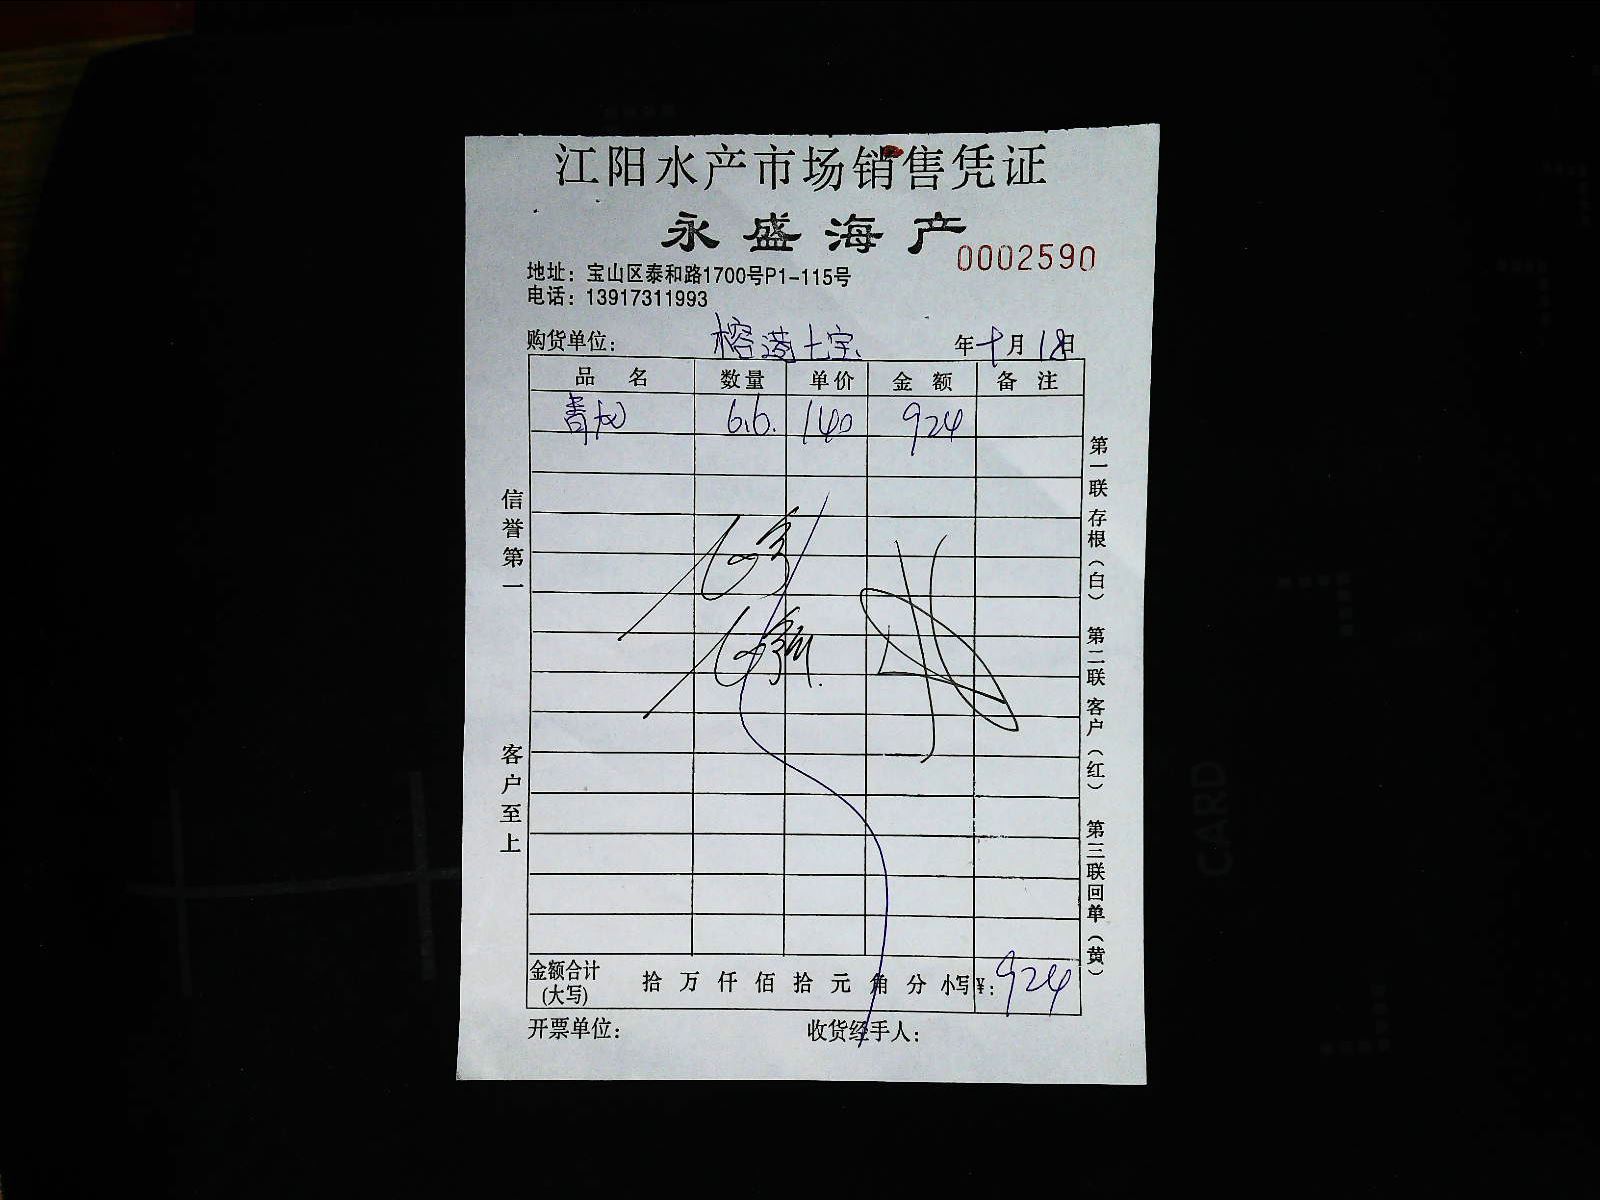 江阳水产市场销售凭证
永盛海产
0002590
地址：宝山区泰和路1700号P1-115号
电话：13917311993
购货单位： 榕港七宝 年十月18日
品名 数量 单价 金额 备注
青龙 6.6. 140 924
信誉第一
客户至上
第一联 存根（白） 第二联 客户（红） 第三联回单（黄）
金额合计(大写) 拾 万 仟 佰 拾 元 角 分 小写¥：924
开票单位： 收货经手人：
CARD